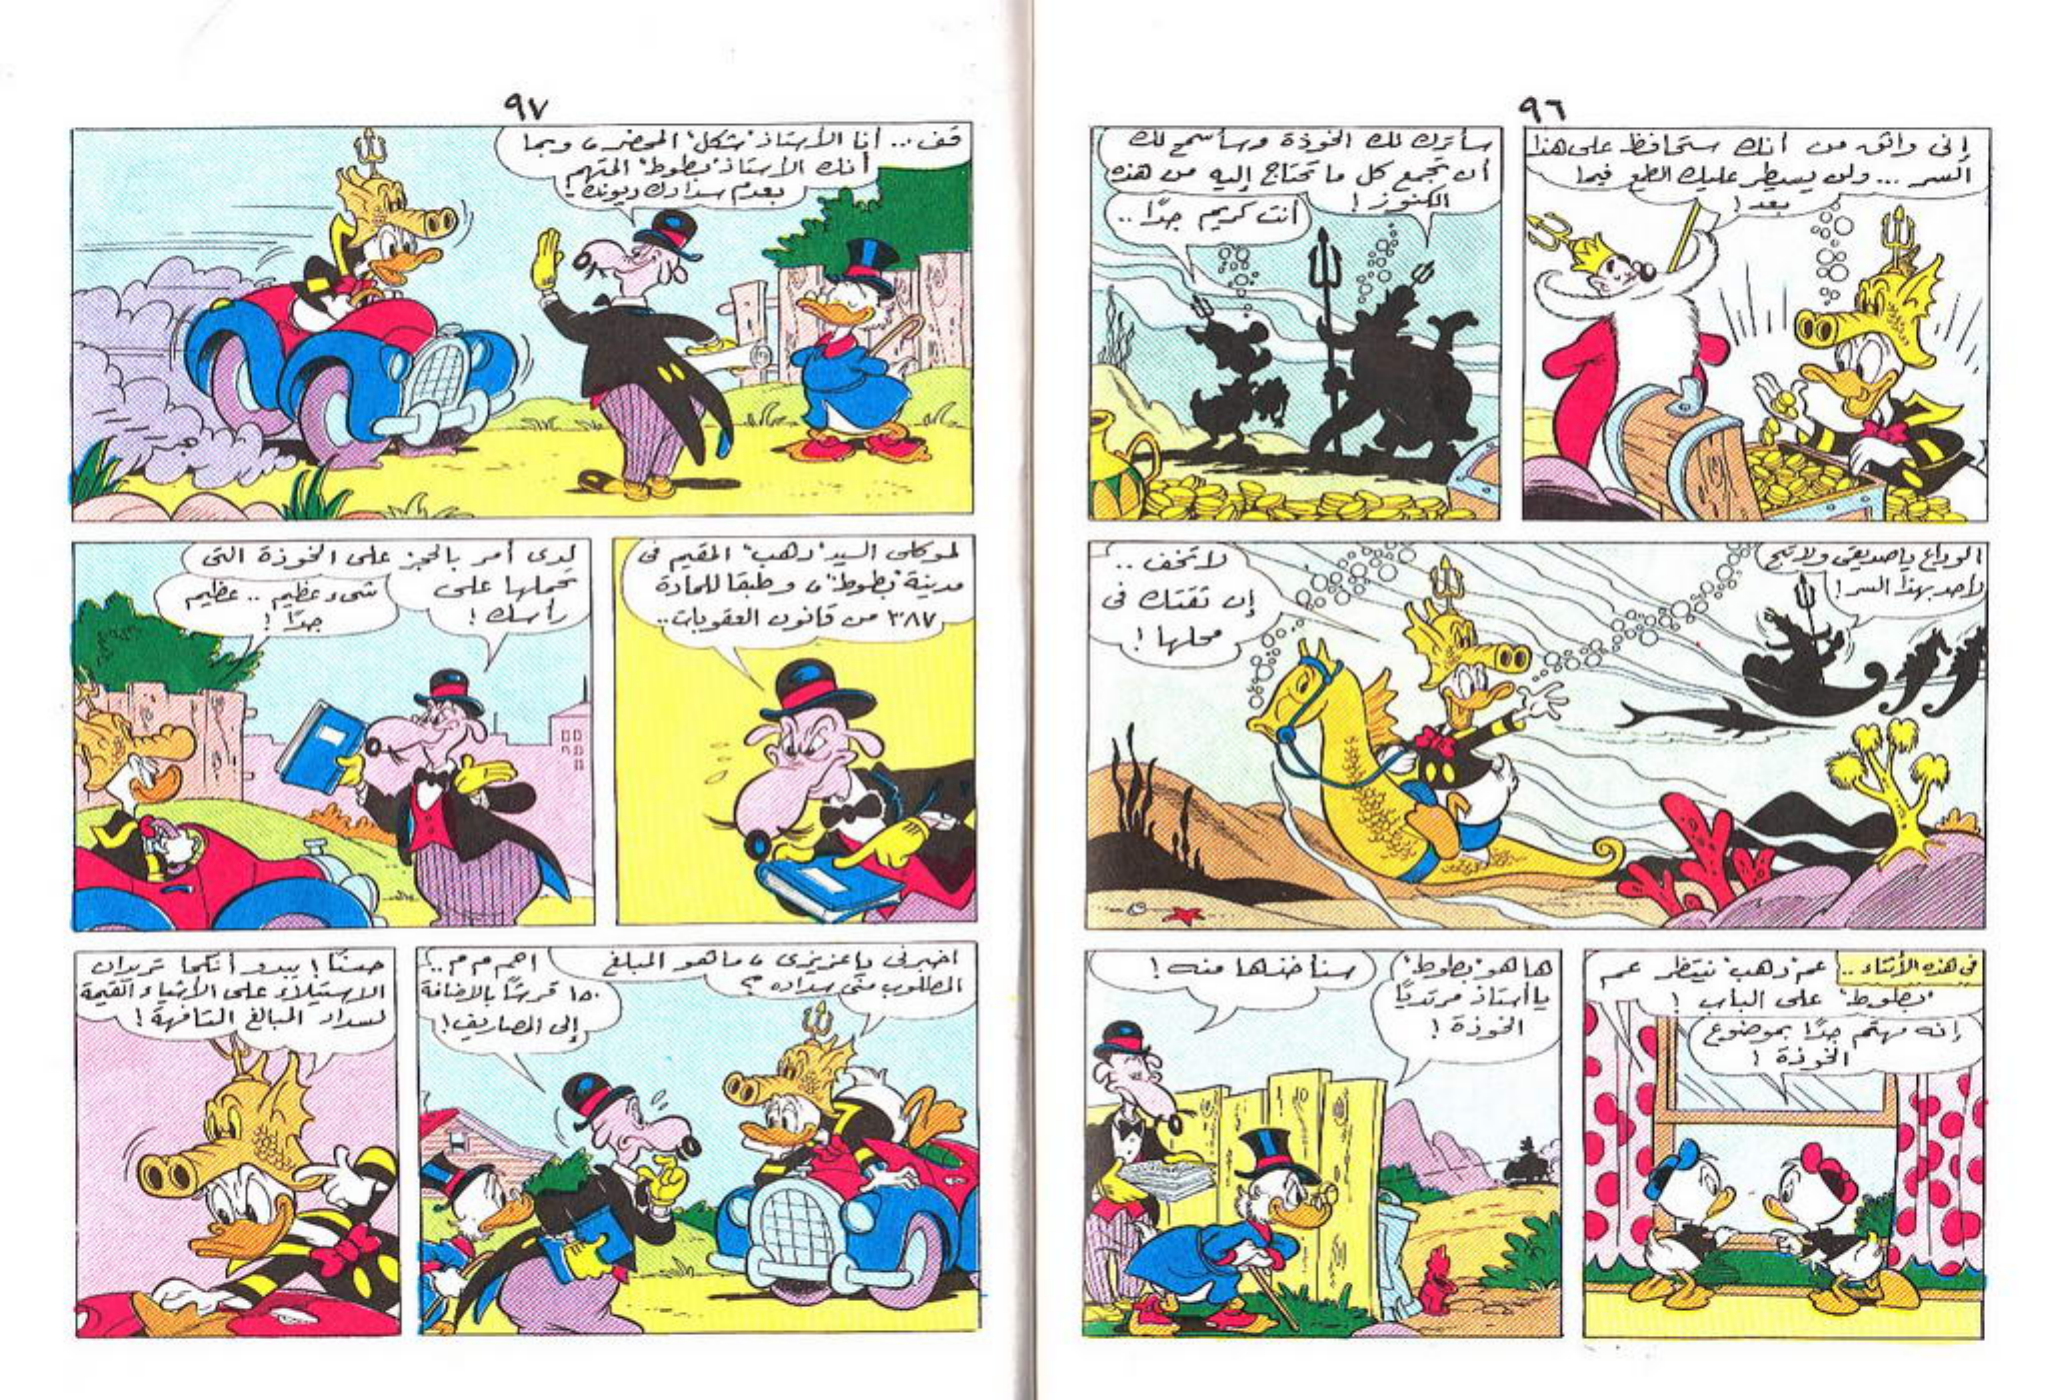 ٩٦
إنى واثق من أنك ستحافظ على هذا
السر ... ولن يسيطر عليك الطمع فيما
بعد !
سأترك لك الخوذة وسأسمح لك
أن تجمع كل ما تحتاج إليه من هذه
الكنوز !
أنت كريم جدًا ..
الوداع ياصديقى ولا تبح
لأحد بهذا السر !
لا تخف ..
إن ثقتك فى
محلها !
فى هذه الأثناء ..
عم "دهب" ينتظر عم
"بطوط" على الباب !
إنه مهتم جدًا بموضوع
الخوذة !
ها هو "بطوط"
يا أستاذ مرتديًا
الخوذة !
سنأخذها منه !
٩٧
قف .. أنا الأستاذ "شكل" المحضر، وبما
أنك الأستاذ "بطوط" المتهم
بعدم سدادك ديونك !
لموكلى السيد "دهب" المقيم فى
مدينة "بطوط"، وطبقا للمادة
٣٨٧ من قانون العقوبات ..
لدى أمر بالحجز على الخوذة التى
تحملها على
رأسك !
شىء عظيم .. عظيم
جدًا !
اخبرنى ياعزيزى، ما هو المبلغ
المطلوب منى سداده ؟
اهم م م م ..
١٥٠ قرشًا بالإضافة
إلى المصاريف !
حسنًا ! يبدو أنكما تريدان
الاستيلاء على الأشياء القيمة
لسداد المبالغ التافهة !